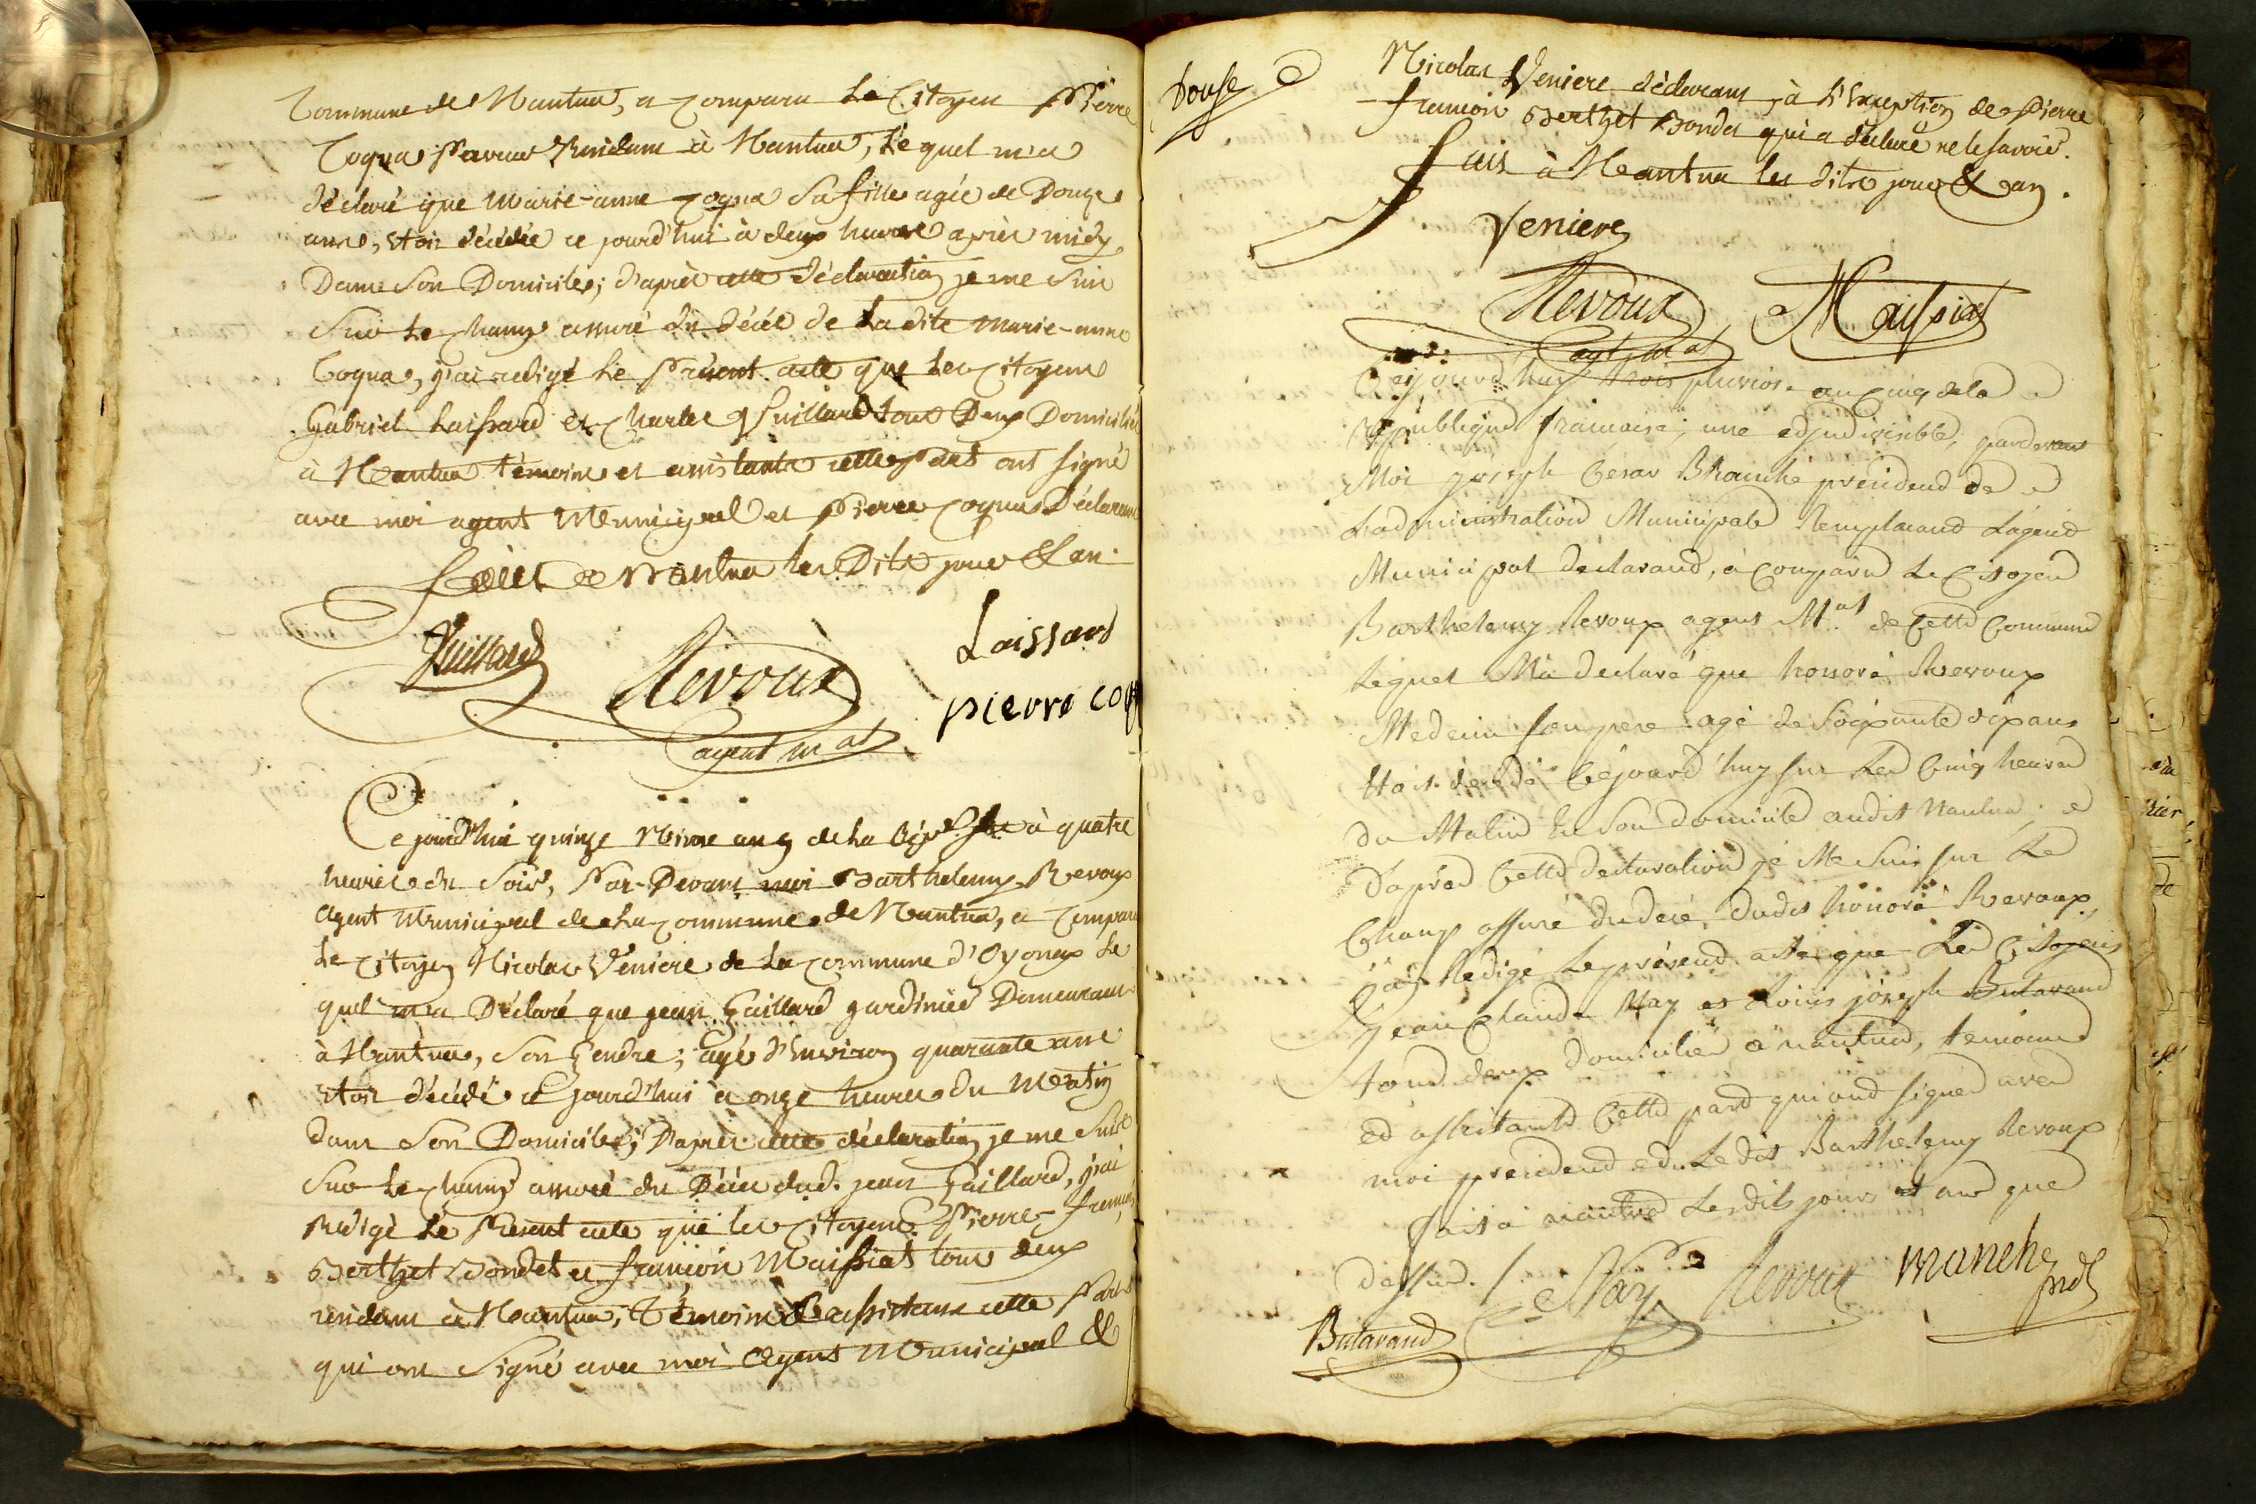 Commune de Nantua, a comparu Le Citoyen Pierre
Cogna résidant à Nantua, le quel m'a
déclaré que Marie-anne Cogna Sa fille agée de Douze
ans, Etoit décédée ce jourd'hui à deux heures après midy
Dans Son Domicile; d'après cette déclaration je me suis
Sur Le champ assuré du décès de La dite Marie-anne
Cogna, j'ai redigé Le Présent acte que Les Citoyens
Gabriel Laissard et Charles Juillard tous Deux Domiciliés
à Nantua témoins et assistants cette part ont signé
avec moi agent Municipal et Pierre Cogna Déclarant
Fait à Nantua les Dits jour & an.
Juillard
Revoux
agent m.al
Laissard
pierre cog
Ce jourd'hui quinze Nivose an 5 de La à quatre
heures du Soir, Par-Devant moi Barthelemy Revoux
Agent Municipal de La Commune de Nantua, a Comparu
Le Citoyen Nicolas Veniere de La Commune d'Oyonax Le
quel m'a Déclaré que jean Gaillard jardinier Demeurant
à Nantua, Son Gendre; agé d'Environ quarante ans
Etoit décédé ce jourd'hui à onze heures du Matin
dans Son Domicile; D'après cette déclaration je me Suis
Sur Le champ assuré du Décès dud. jean Gaillard, j'ai
Rédigé Le Présent acte que les Citoyens Pierre-françois
Berthet Bondet et françois Maissiat tous deux
résidant à Nantua, Témoins & assistans cette Part
qui ont Signé avec moi Agent Municipal &
Douse
Nicolas Veniere déclarant, à L'Exception de Pierre
françois Berthet Bondet qui a déclaré ne le savoir.
Fait à Nantua les dits jour & an.
Veniere
Revoux
agt m.al
Maissiat
Cejourd'huy trois pluviose an cinq de la
République francaise, une edjndivisible, pardevant
Moi joseph César président de
L'administration Municipale Remplacand Lagend
Municipal déclarand, a comparu Le Citoyend
Barthelemy Revoux agent M.al de Cette Commune
Lequel M'a declaré que honoré Revoux
Medecin son pere agé de Soixante six ans
Etoit décédé Cejourd'huy sur Les Cinq heures
du Matin En Son domicile audit Nantua;
D'après Cette declaration je Me Suis sur Le
Champ assuré du decé dudit honoré Revoux,
j'ai Redigé Le présend acte que Les Citoyens
Jean Claude Nay et Louis joseph Butavand
tous deux domicilié à nantua, temoins
ed assistants Cette pard qui ond signed aved
moi présidend edu Ledit Barthelemy Revoux
fait à nantua Lesdits jour et and que
Dessus. /.
Nay
Revoux
Butavand